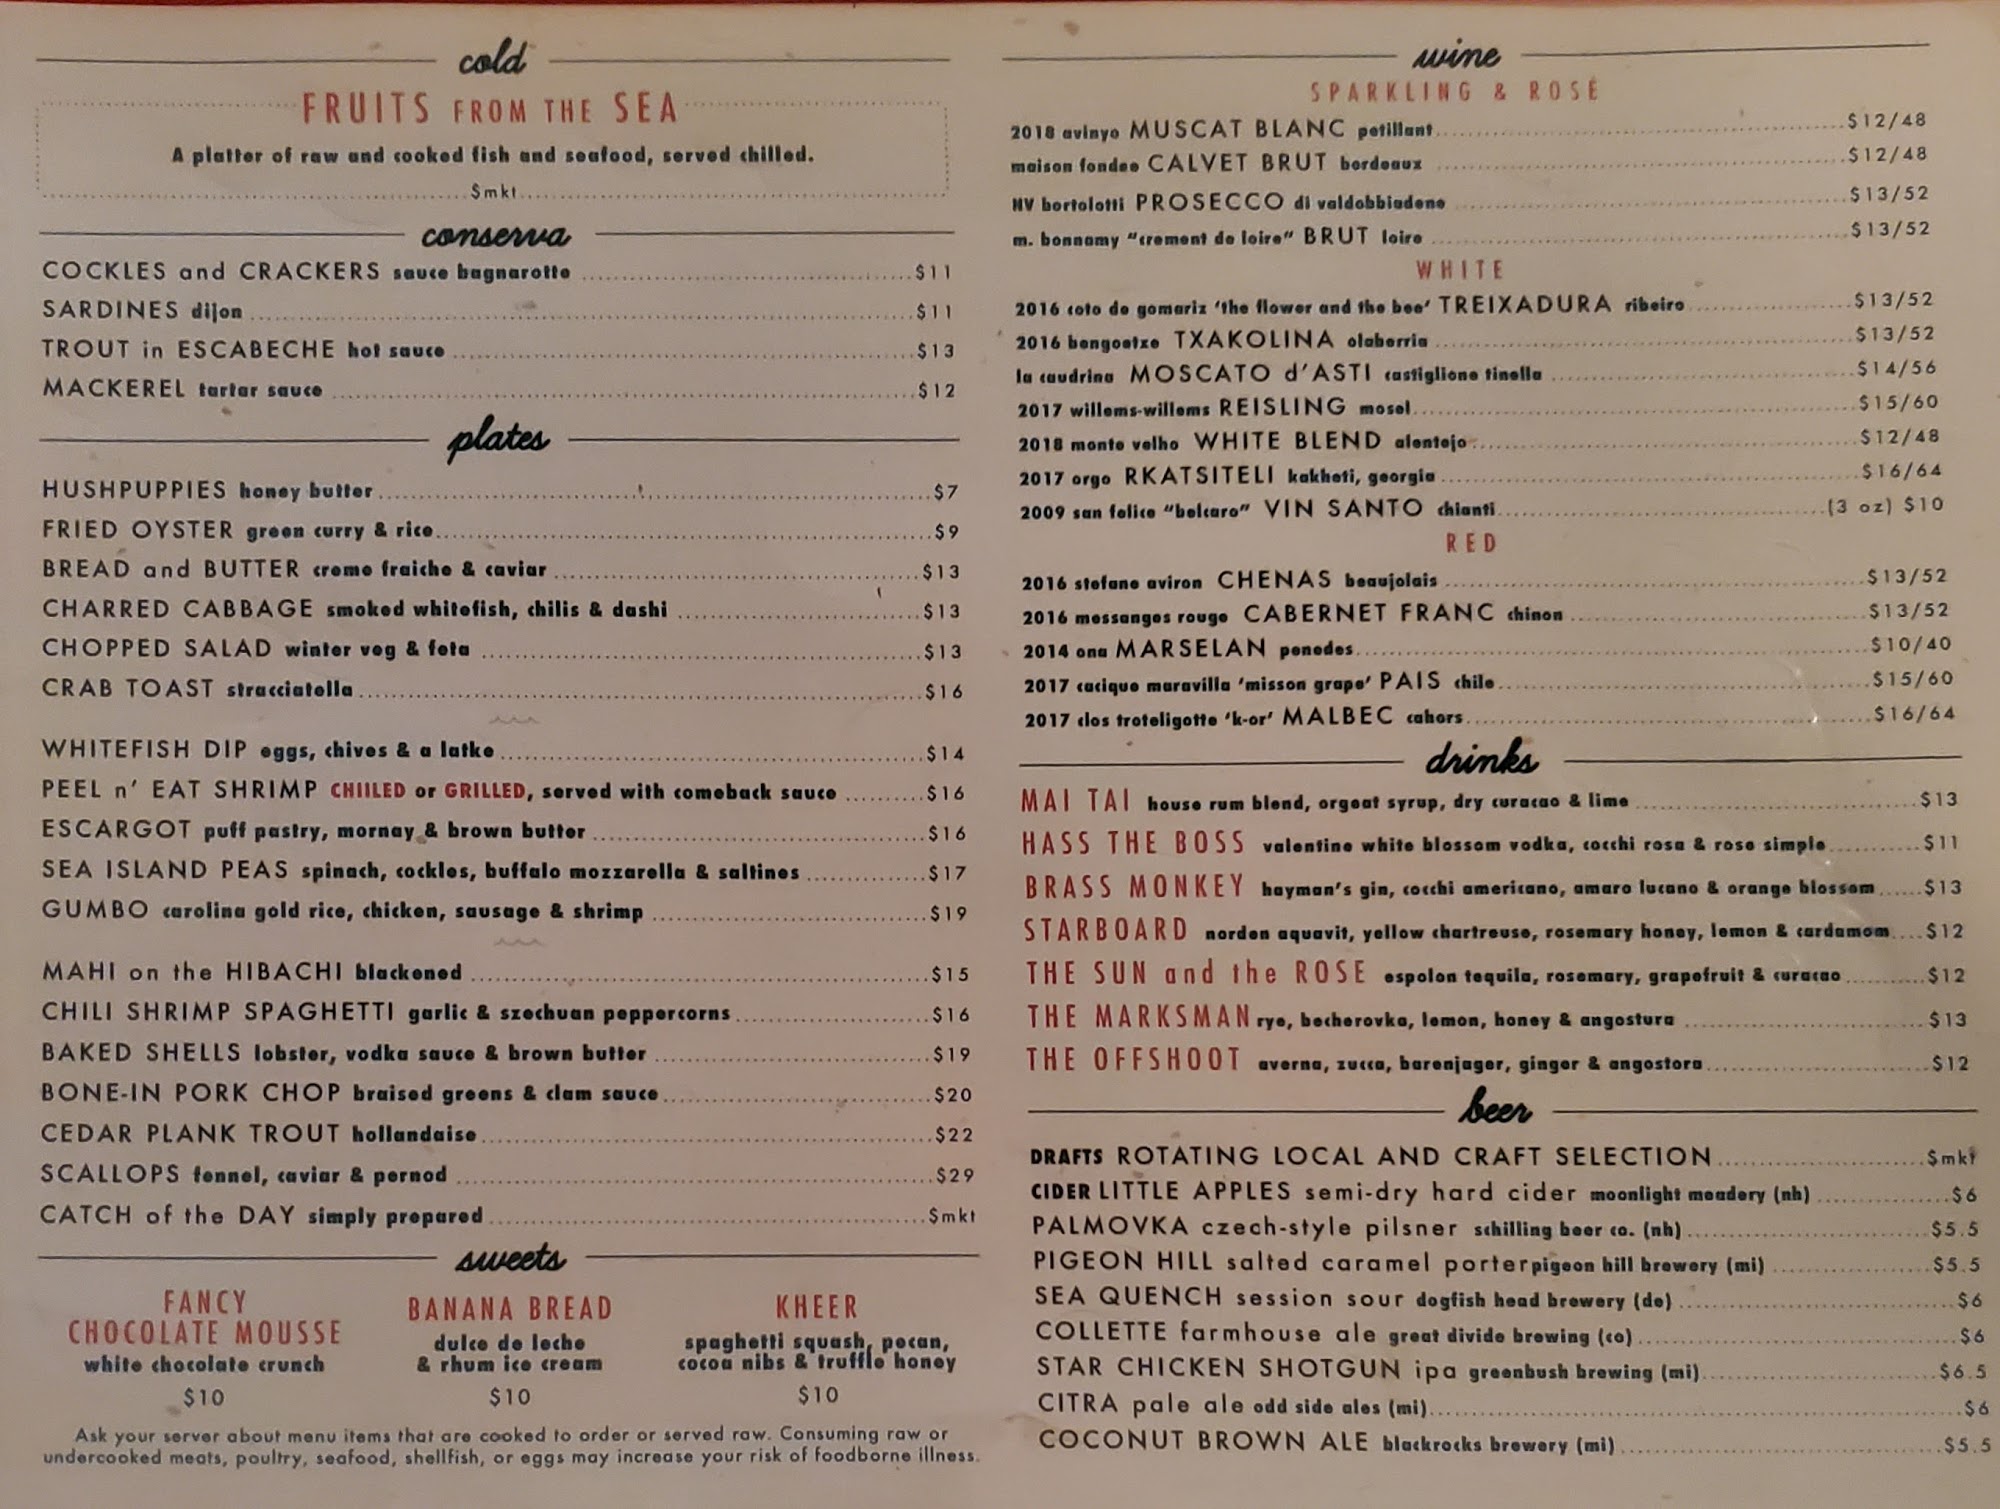 cold
FRUITS FROM THE SEA
A platter of raw and cooked fish and seafood, served chilled.
$mkt
conserva
COCKLES and CRACKERS sauce bagnarotte $11
SARDINES dijon $11
TROUT in ESCABECHE hot sauce $13
MACKEREL tartar sauce $12
plates
HUSHPUPPIES honey butter $7
FRIED OYSTER green curry & rice $9
BREAD and BUTTER creme fraiche & caviar $13
CHARRED CABBAGE smoked whitefish, chilis & dashi $13
CHOPPED SALAD winter veg & feta $13
CRAB TOAST stracciatella $16
WHITEFISH DIP eggs, chives & a latke $14
PEEL n' EAT SHRIMP CHIILED or GRILLED, served with comeback sauce $16
ESCARGOT puff pastry, mornay & brown butter $16
SEA ISLAND PEAS spinach, cockles, buffalo mozzarella & saltines $17
GUMBO carolina gold rice, chicken, sausage & shrimp $19
MAHI on the HIBACHI blackened $15
CHILI SHRIMP SPAGHETTI garlic & szechuan peppercorns $16
BAKED SHELLS lobster, vodka sauce & brown butter $19
BONE-IN PORK CHOP braised greens & clam sauce $20
CEDAR PLANK TROUT hollandaise $22
SCALLOPS fennel, caviar & pernod $29
CATCH of the DAY simply prepared $mkt
sweets
FANCY
CHOCOLATE MOUSSE
white chocolate crunch
$10
BANANA BREAD
dulce de leche
& rhum ice cream
$10
KHEER
spaghetti squash, pecan,
cocoa nibs & truffle honey
$10
Ask your server about menu items that are cooked to order or served raw. Consuming raw or
undercooked meats, poultry, seafood, shellfish, or eggs may increase your risk of foodborne illness.
wine
SPARKLING & ROSÉ
2018 avinyo MUSCAT BLANC petillant $12/48
maison fondee CALVET BRUT bordeaux $12/48
NV bortolotti PROSECCO di valdobbiadene $13/52
m. bonnamy "crement de loire" BRUT loire $13/52
WHITE
2016 coto de gomariz 'the flower and the bee' TREIXADURA ribeiro $13/52
2016 bengoetxe TXAKOLINA olaberria $13/52
la caudrina MOSCATO d'ASTI castiglione tinella $14/56
2017 willems-willems REISLING mosel $15/60
2018 monte velho WHITE BLEND alentejo $12/48
2017 orgo RKATSITELI kakheti, georgia $16/64
2009 san felice "belcaro" VIN SANTO chianti (3 oz) $10
RED
2016 stefane aviron CHENAS beaujolais $13/52
2016 messanges rouge CABERNET FRANC chinon $13/52
2014 ona MARSELAN penedes $10/40
2017 cacique maravilla 'misson grape' PAIS chile $15/60
2017 clos troteligotte 'k-or' MALBEC cahors $16/64
drinks
MAI TAI house rum blend, orgeat syrup, dry curacao & lime $13
HASS THE BOSS valentine white blossom vodka, cocchi rosa & rose simple $11
BRASS MONKEY hayman's gin, cocchi americano, amaro lucano & orange blossom $13
STARBOARD norden aquavit, yellow chartreuse, rosemary honey, lemon & cardamom $12
THE SUN and the ROSE espolon tequila, rosemary, grapefruit & curacao $12
THE MARKSMAN rye, becherovka, lemon, honey & angostura $13
THE OFFSHOOT averna, zucca, barenjager, ginger & angostora $12
beer
DRAFTS ROTATING LOCAL AND CRAFT SELECTION $mkt
CIDER LITTLE APPLES semi-dry hard cider moonlight meadery (nh) $6
PALMOVKA czech-style pilsner schilling beer co. (nh) $5.5
PIGEON HILL salted caramel porter pigeon hill brewery (mi) $5.5
SEA QUENCH session sour dogfish head brewery (de) $6
COLLETTE farmhouse ale great divide brewing (co) $6
STAR CHICKEN SHOTGUN ipa greenbush brewing (mi) $6.5
CITRA pale ale odd side ales (mi) $6
COCONUT BROWN ALE blackrocks brewery (mi) $5.5